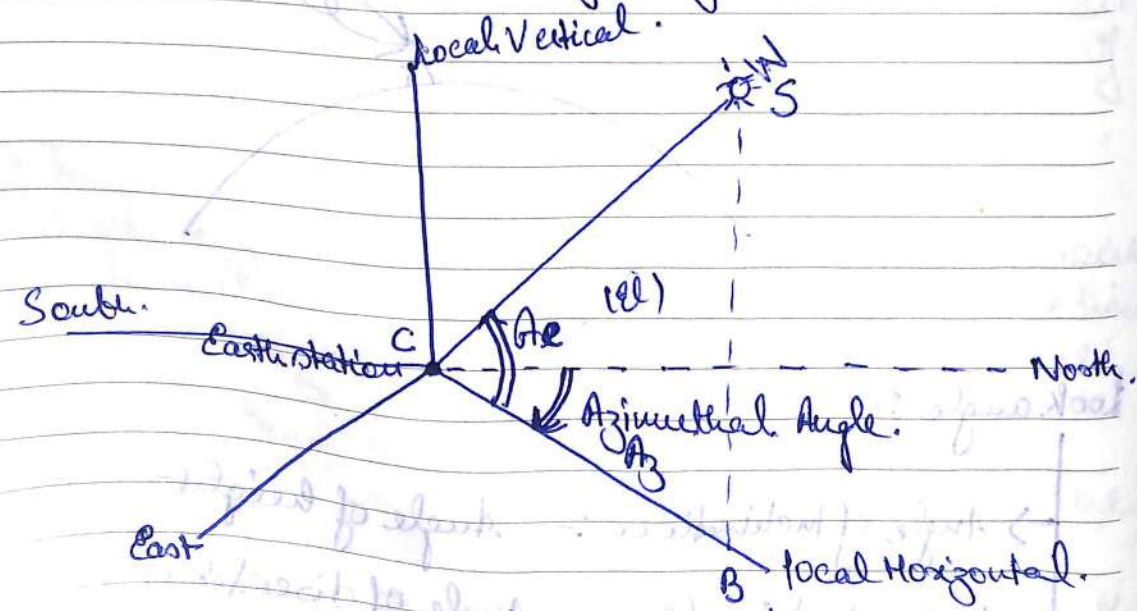 Local Vertical.
S
(El)
South.
C
Ae
Earth station
North.
Azimuthal Angle.
Az
East
B
local Horizontal.